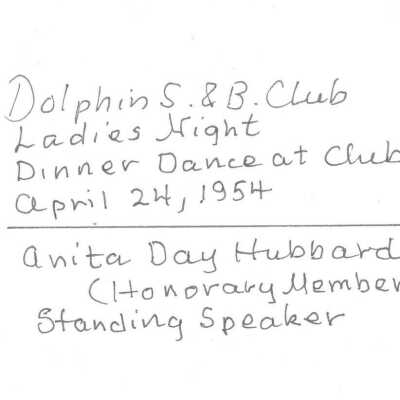 Dolphin S. & B. Club
Ladies Night
Dinner Dance at Club
April 24, 1954
Anita Day Hubbard
(Honorary Member
Standing Speaker